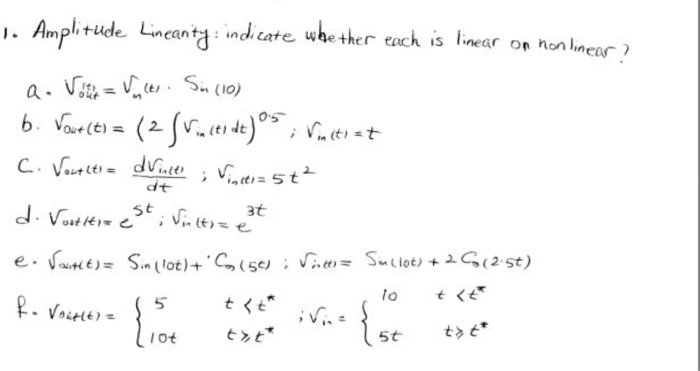 1. Amplitude Linearity: indicate whether each is linear or nonlinear?
a. Vout(t) = Vin(t) . Sin(10)
b. Vout(t) = (2 ∫Vin(t) dt)^0.5 ; Vin(t) = t
C. Vout(t) = dVin(t)/dt ; Vin(t) = 5t^2
d. Vout(t) = e^5t ; Vin(t) = e^3t
e. Vout(t) = Sin(10t) + Cos(5t) ; Vin(t) = Sin(10t) + 2 Cos(2.5t)
f. Vout(t) = { 5 t < t* ; Vin = { 10 t < t*
10t t ≥ t* 5t t ≥ t*